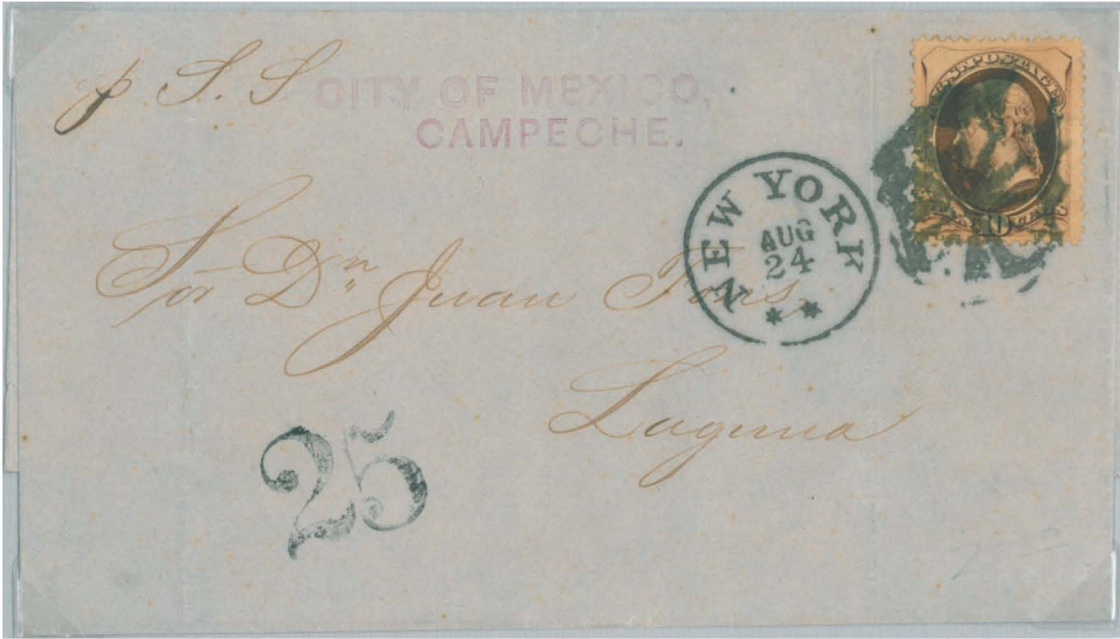 p S. S CITY OF MEXICO,
CAMPECHE.
U.S. POSTAGE
NEW YORK
AUG
24
Sor Dn Juan
Laguna
25